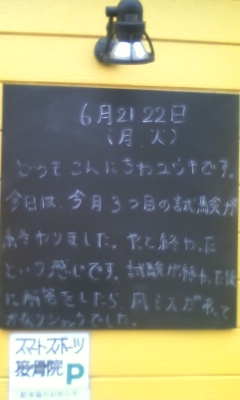 6月21 22日
(月、火)
どうも、こんにちわユウキです。
今日は、今月3つ目の試験が
終わりました。やと終わった
という感じです。試験が終わった後
に解答をしたら凡ミスがあって
かなりショックでした。
スマートスポーツ
接骨院 P
駐車場のお知らせ